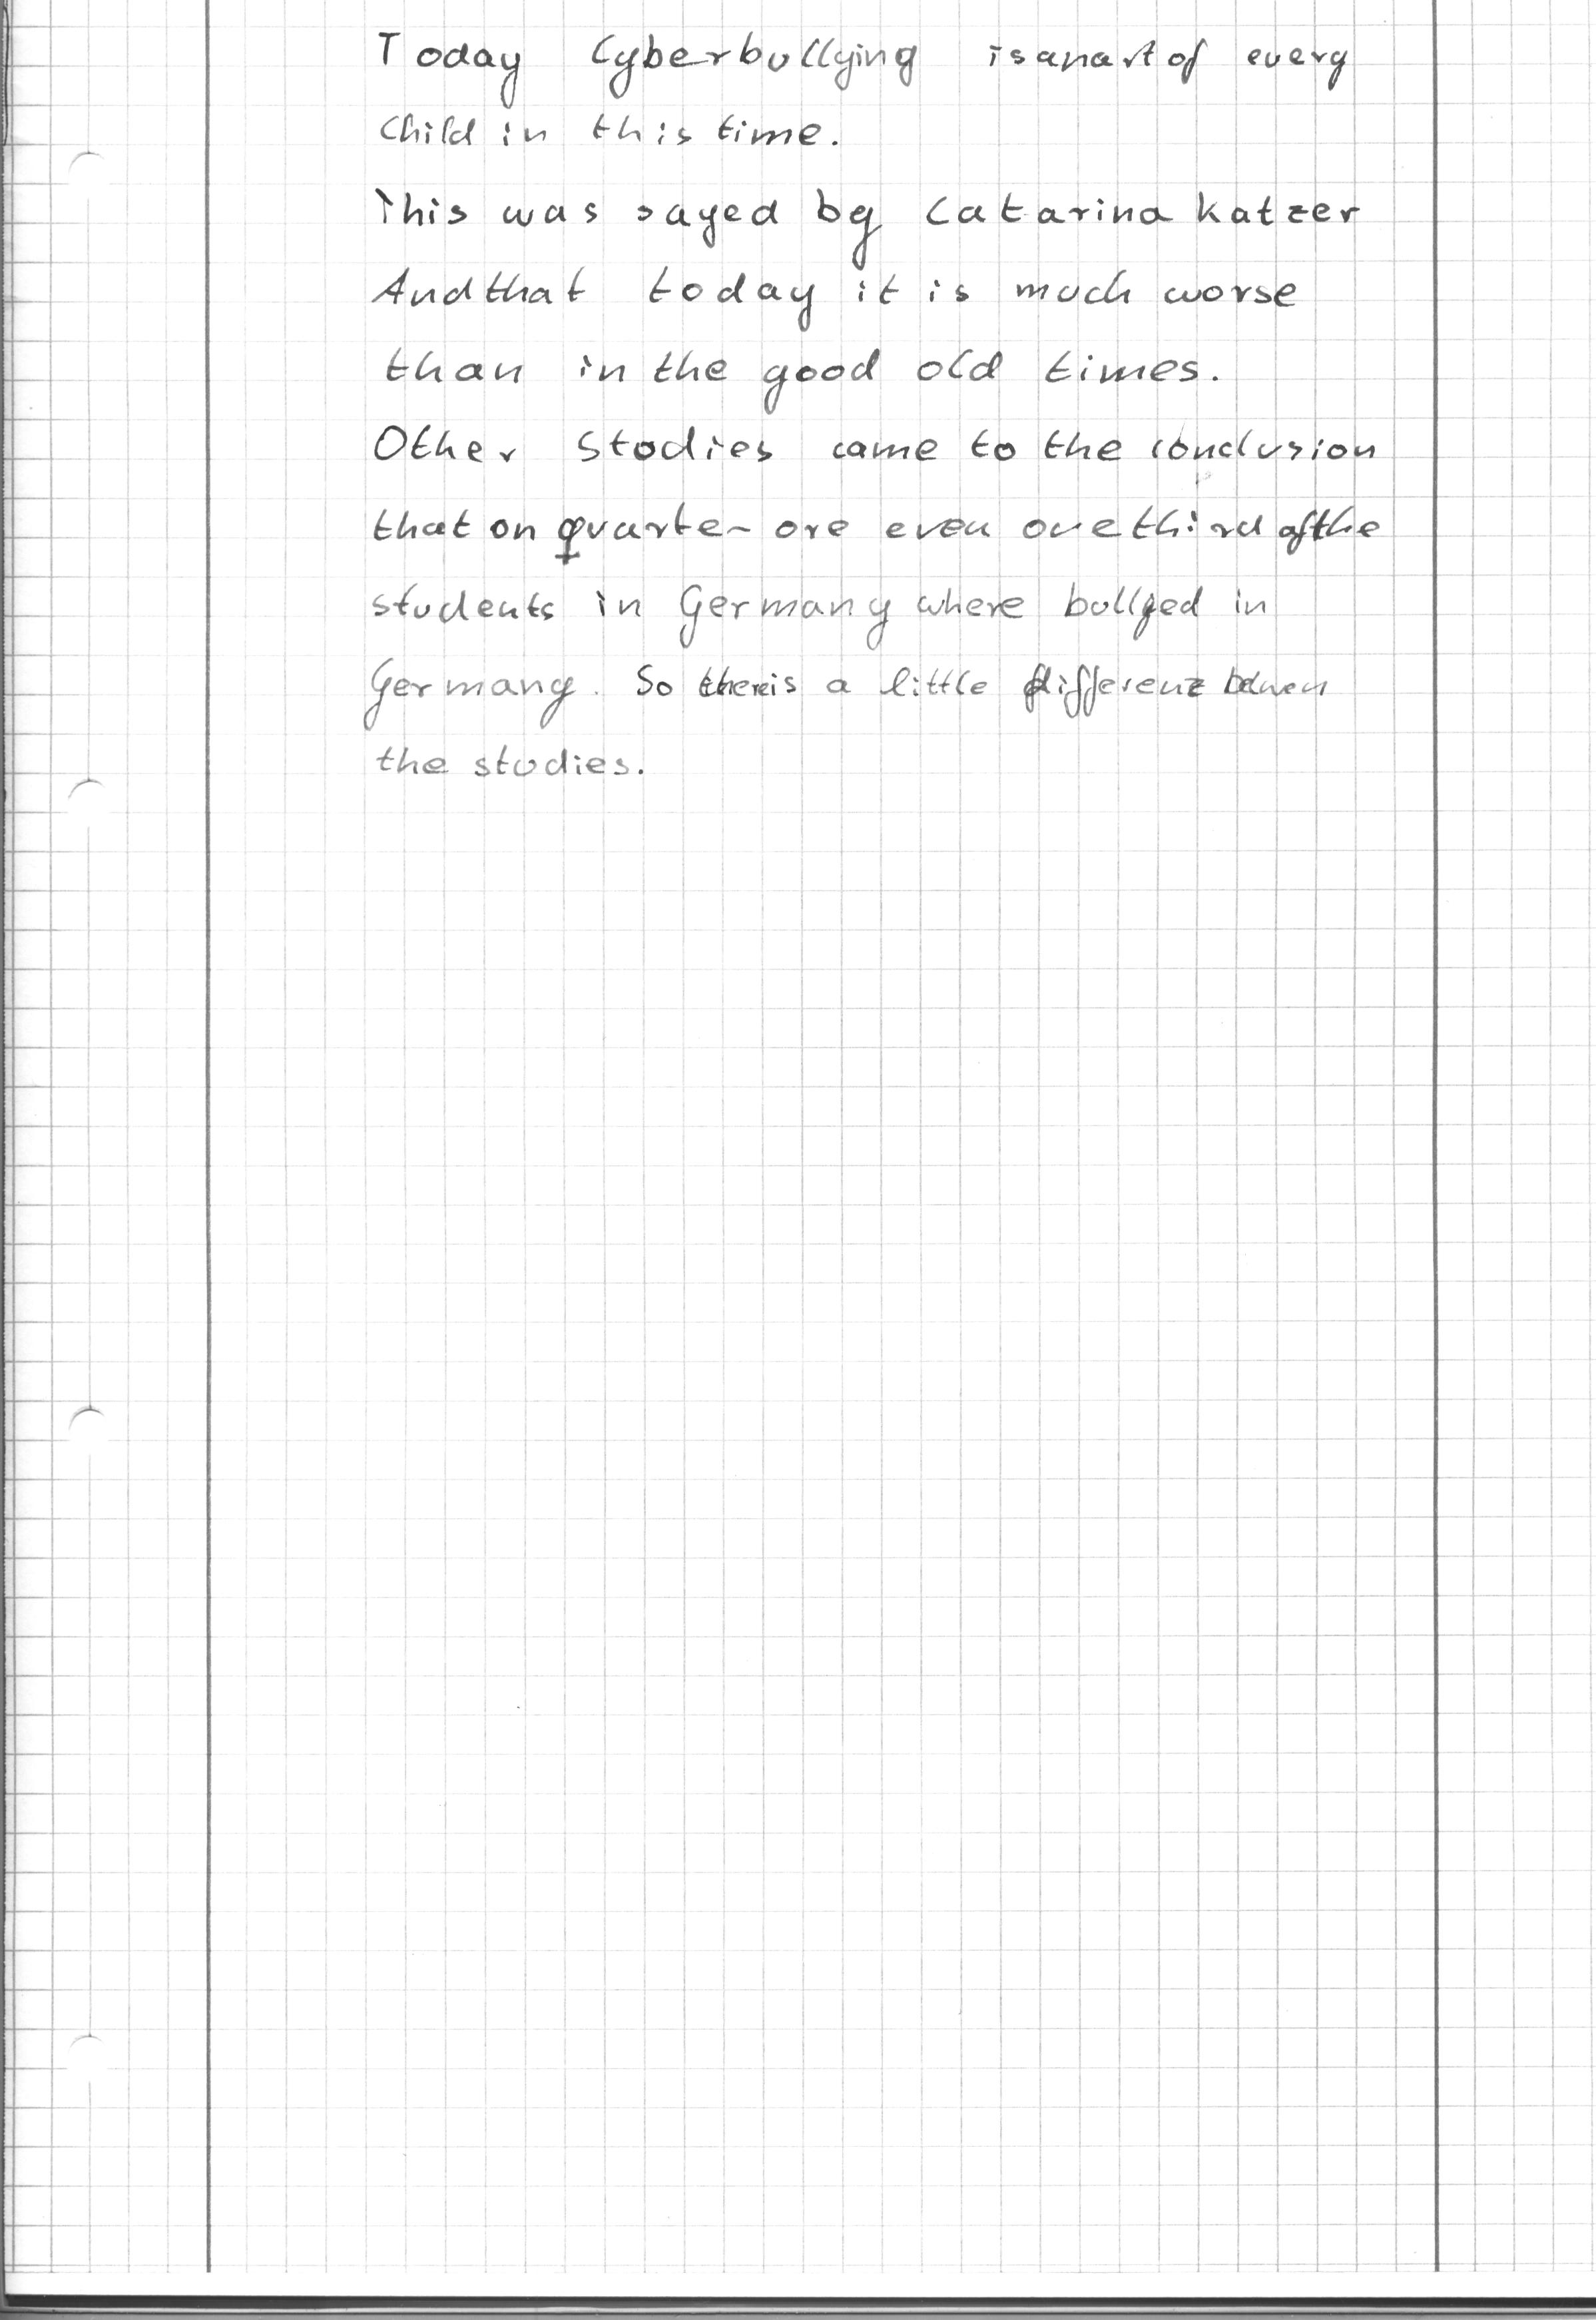 Today Cyberbullying is a part of every
Child in this time.
This was sayed by Catarina Katzer
And that today it is much worse
than in the good old times.
Other Studies came to the conclusion
that on quarter ore even one third of the
students in Germany where bullyed in
Germany. So there is a little differenz
the studies.